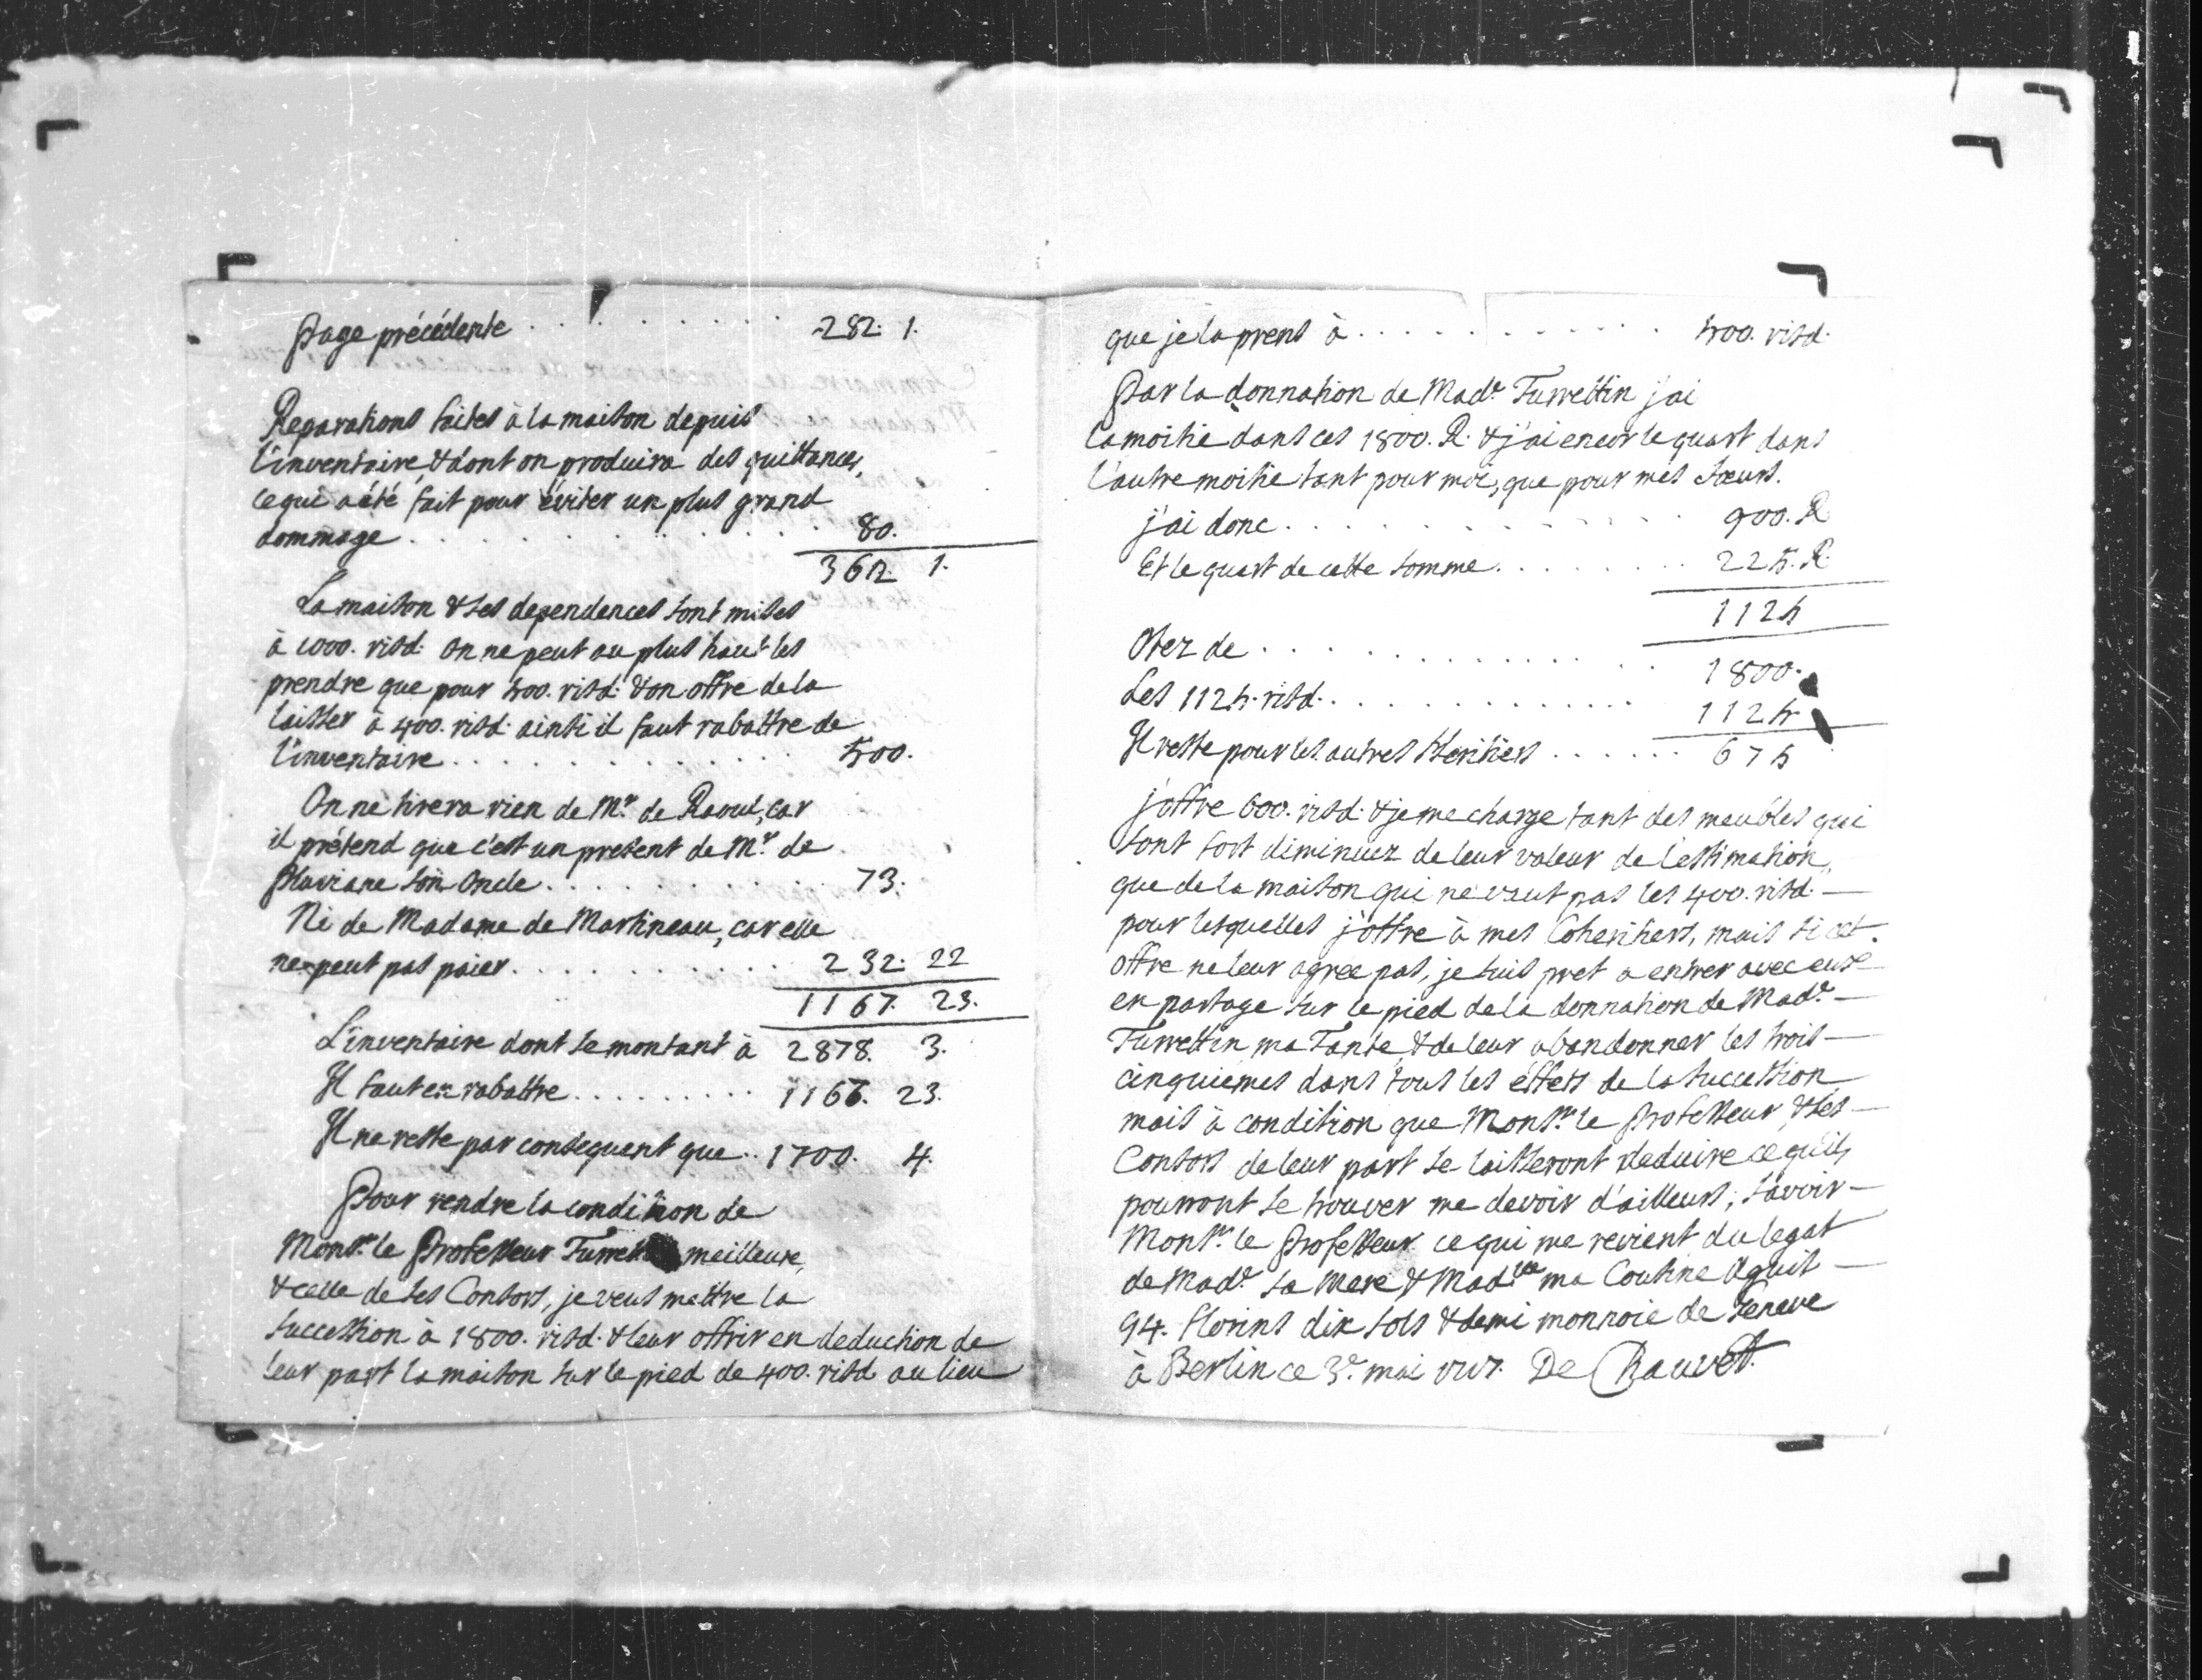 Page précédente . . . . . . . . . 282. 1.
Reparations faites à la maison depuis
l'inventaire, & dont on produira des quittances,
ce qui a été fait pour éviter un plus grand
dommage . . . . . . . . . . . 80.
362. 1.
La maison & ses dependences sont mises
à 1000. risd: on ne peut au plus haut les
prendre que pour 500. risd: & on offre de la
laisser à 400. risd: ainsi il faut rabattre de
l'inventaire . . . . . . . . . . . 500.
On ne tirera rien de Mr. de Raoul, car
il prétend que c'est un present de Mr. de
Pluviane son Oncle . . . . . . . . . 73.
Ni de Madame de Martineau, car elle
ne peut pas paier . . . . . . . . . 232. 22
1167. 23.
L'inventaire dont se montant à 2878. 3.
Il faut en rabattre . . . . . . . . . 1167. 23.
Il ne reste par consequent que . . 1700. 4.
Pour rendre la condition de
Monsr. le Professeur meilleure,
& celle de ses Consors, je veus mettre la
succession à 1800. risd. & leur offrir en deduction de
leur part la maison sur le pied de 400. risd. au lieu
que je la prens à . . . . . . . . . . . 500. risd:
Par la donnation de Made. Turrettin j'ai
la moitié dans ces 1800. R. & j'ai encor le quart dans
l'autre moitié tant pour moi, que pour mes sœurs.
j'ai donc . . . . . . . . . . . 900. R.
Et le quart de cette somme . . . . . . . . 225. R.
1125
Otez de . . . . . . . . . . . 1800.
Les 1125. risd. . . . . . . . . . . 1125
Il reste pour les autres Heritiers . . . . . . 675
j'offre 600. risd: & je me charge tant des meubles qui
sont fort diminuez de leur valeur de l'estimation,
que de la maison qui ne vaut pas les 400. risd. —
pour lesquelles j'offre à mes Coheritiers, mais si cet
offre ne leur agree pas, je suis pret a entrer avec eux
en partage sur le pied de la donnation de Made. —
Turrettin ma Tante, & de leur abandonner les trois —
cinquiemes dans tous les éffets de la succession
mais à condition que Monsr. le Professeur & ses —
Consors de leur part se laisseront deduire ce qu'ils
pourront se trouver me devoir d'ailleurs, savoir —
Monsr. le Professeur ce qui me revient du legat
de Made. sa Mere & Madlle ma Cousine —
94. florins dix sols & demi monnoie de Geneve
à Berlin ce 3e. mai De Chauvet.